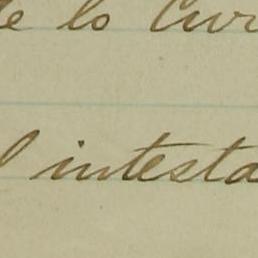 de lo Civ
l intesta